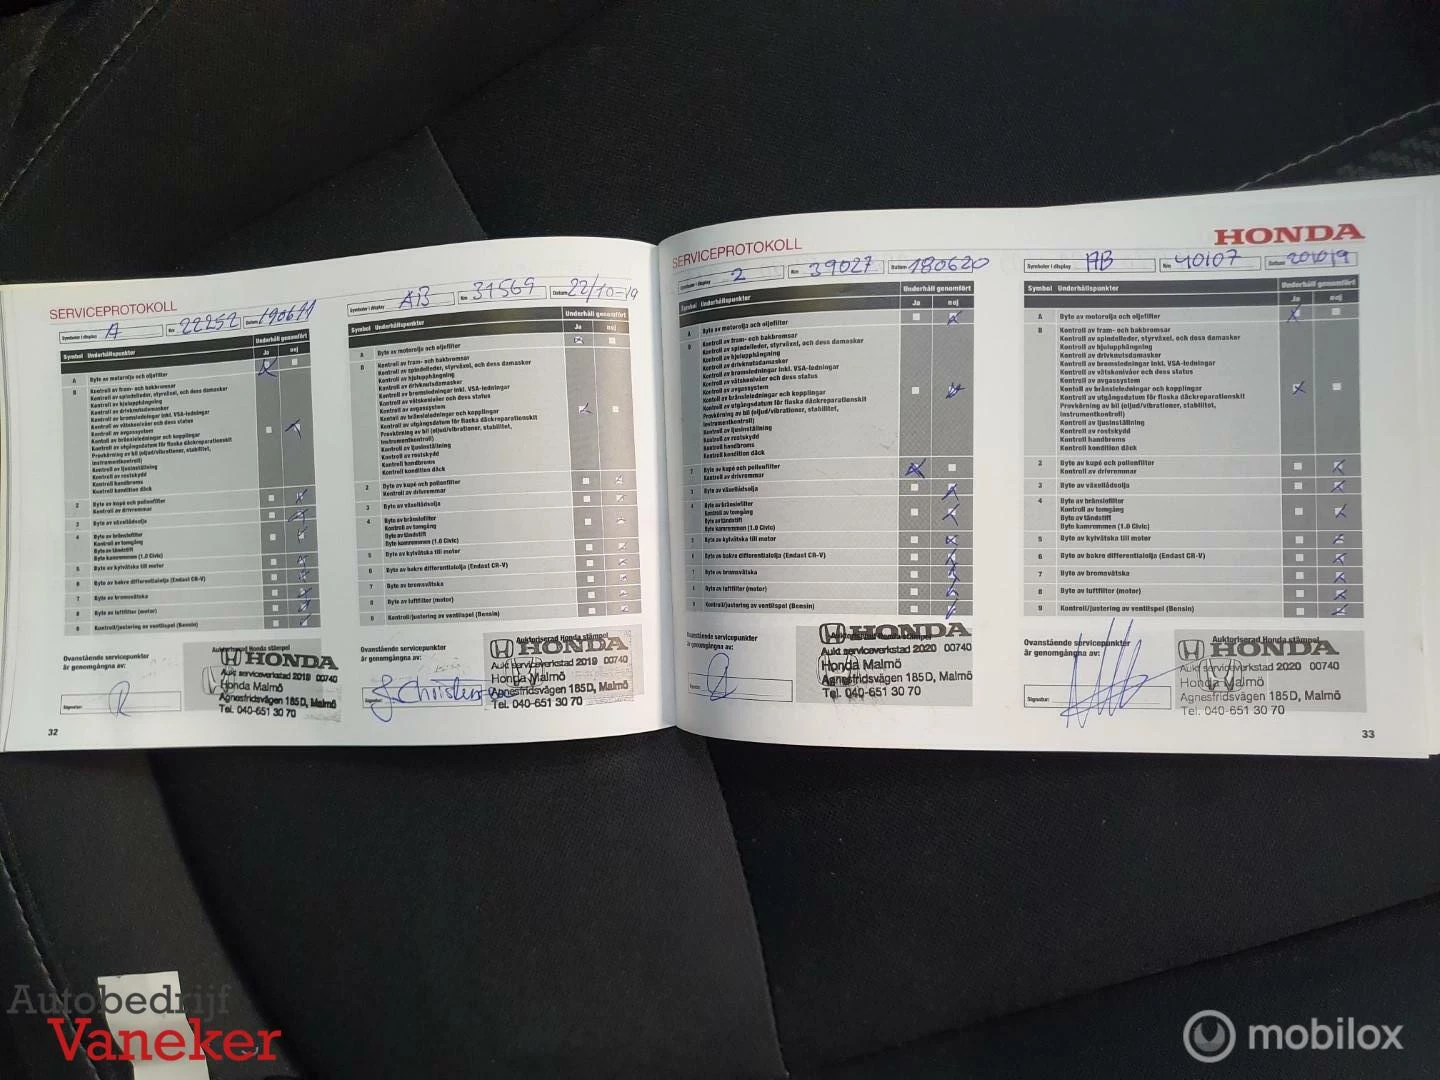 SERVICEPROTOKOLL
Symboler i display A Km 22252 Datum 190611
Symbol Underhållspunkter Underhåll genomfört
Ja nej
A Byte av motorolja och oljefilter
B Kontroll av fram- och bakbromsar
Kontroll av spindelleder, styrväxel, och dess damasker
Kontroll av hjulupphängning
Kontroll av drivknutsdamasker
Kontroll av bromsledningar inkl. VSA-ledningar
Kontroll av vätskenivåer och dess status
Kontroll av avgassystem
Kontroll av bränsleledningar och kopplingar
Kontroll av utgångsdatum för flaska däckreparationskit
Provkörning av bil (oljud/vibrationer, stabilitet,
instrumentkontroll)
Kontroll av ljusinställning
Kontroll av rostskydd
Kontroll handbroms
Kontroll kondition däck
2 Byte av kupé och pollenfilter
Kontroll av drivremmar
3 Byte av växellådsolja
4 Byte av bränslefilter
Kontroll av tomgång
Byte av tändstift
Byte kamremmen (1.0 Civic)
5 Byte av kylvätska till motor
6 Byte av bakre differentialolja (Endast CR-V)
7 Byte av bromsvätska
8 Byte av luftfilter (motor)
9 Kontroll/justering av ventilspel (Bensin)
Ovanstående servicepunkter
är genomgångna av:
Auktoriserad Honda stämpel
HONDA
Aukt serviceverkstad 2019 00740
Honda Malmö
Agnesfridsvägen 185D, Malmö
Tel. 040-651 30 70
32
Symboler i display AB Km 31569 Datum 22/10-19
Symbol Underhållspunkter Underhåll genomfört
Ja nej
A Byte av motorolja och oljefilter
B Kontroll av fram- och bakbromsar
Kontroll av spindelleder, styrväxel, och dess damasker
Kontroll av hjulupphängning
Kontroll av drivknutsdamasker
Kontroll av bromsledningar inkl. VSA-ledningar
Kontroll av vätskenivåer och dess status
Kontroll av avgassystem
Kontroll av bränsleledningar och kopplingar
Kontroll av utgångsdatum för flaska däckreparationskit
Provkörning av bil (oljud/vibrationer, stabilitet,
instrumentkontroll)
Kontroll av ljusinställning
Kontroll av rostskydd
Kontroll handbroms
Kontroll kondition däck
2 Byte av kupé och pollenfilter
Kontroll av drivremmar
3 Byte av växellådsolja
4 Byte av bränslefilter
Kontroll av tomgång
Byte av tändstift
Byte kamremmen (1.0 Civic)
5 Byte av kylvätska till motor
6 Byte av bakre differentialolja (Endast CR-V)
7 Byte av bromsvätska
8 Byte av luftfilter (motor)
9 Kontroll/justering av ventilspel (Bensin)
Ovanstående servicepunkter
är genomgångna av:
Signatur:
Auktoriserad Honda stämpel
HONDA
Aukt serviceverkstad 2019 00740
Honda Malmö
Agnesfridsvägen 185D, Malmö
Tel. 040-651 30 70
SERVICEPROTOKOLL
HONDA
Symboler i display 2 Km 39027 Datum 180620
Symbol Underhållspunkter Underhåll genomfört
Ja nej
A Byte av motorolja och oljefilter
B Kontroll av fram- och bakbromsar
Kontroll av spindelleder, styrväxel, och dess damasker
Kontroll av hjulupphängning
Kontroll av drivknutsdamasker
Kontroll av bromsledningar inkl. VSA-ledningar
Kontroll av vätskenivåer och dess status
Kontroll av avgassystem
Kontroll av bränsleledningar och kopplingar
Kontroll av utgångsdatum för flaska däckreparationskit
Provkörning av bil (oljud/vibrationer, stabilitet,
instrumentkontroll)
Kontroll av ljusinställning
Kontroll av rostskydd
Kontroll handbroms
Kontroll kondition däck
2 Byte av kupé och pollenfilter
Kontroll av drivremmar
3 Byte av växellådsolja
4 Byte av bränslefilter
Kontroll av tomgång
Byte av tändstift
Byte kamremmen (1.0 Civic)
5 Byte av kylvätska till motor
6 Byte av bakre differentialolja (Endast CR-V)
7 Byte av bromsvätska
8 Byte av luftfilter (motor)
9 Kontroll/justering av ventilspel (Bensin)
Ovanstående servicepunkter
är genomgångna av:
Auktoriserad Honda stämpel
HONDA
Aukt serviceverkstad 2020 00740
Honda Malmö
Agnesfridsvägen 185D, Malmö
Tel. 040-651 30 70
Symboler i display AB Km 40107 Datum 201019
Symbol Underhållspunkter Underhåll genomfört
Ja nej
A Byte av motorolja och oljefilter
B Kontroll av fram- och bakbromsar
Kontroll av spindelleder, styrväxel, och dess damasker
Kontroll av hjulupphängning
Kontroll av drivknutsdamasker
Kontroll av bromsledningar inkl. VSA-ledningar
Kontroll av vätskenivåer och dess status
Kontroll av avgassystem
Kontroll av bränsleledningar och kopplingar
Kontroll av utgångsdatum för flaska däckreparationskit
Provkörning av bil (oljud/vibrationer, stabilitet,
instrumentkontroll)
Kontroll av ljusinställning
Kontroll av rostskydd
Kontroll handbroms
Kontroll kondition däck
2 Byte av kupé och pollenfilter
Kontroll av drivremmar
3 Byte av växellådsolja
4 Byte av bränslefilter
Kontroll av tomgång
Byte av tändstift
Byte kamremmen (1.0 Civic)
5 Byte av kylvätska till motor
6 Byte av bakre differentialolja (Endast CR-V)
7 Byte av bromsvätska
8 Byte av luftfilter (motor)
9 Kontroll/justering av ventilspel (Bensin)
Ovanstående servicepunkter
är genomgångna av:
Signatur:
Auktoriserad Honda stämpel
HONDA
Aukt serviceverkstad 2020 00740
Honda Malmö
Agnesfridsvägen 185D, Malmö
Tel. 040-651 30 70
33
Autobedrijf
Vaneker
mobilox